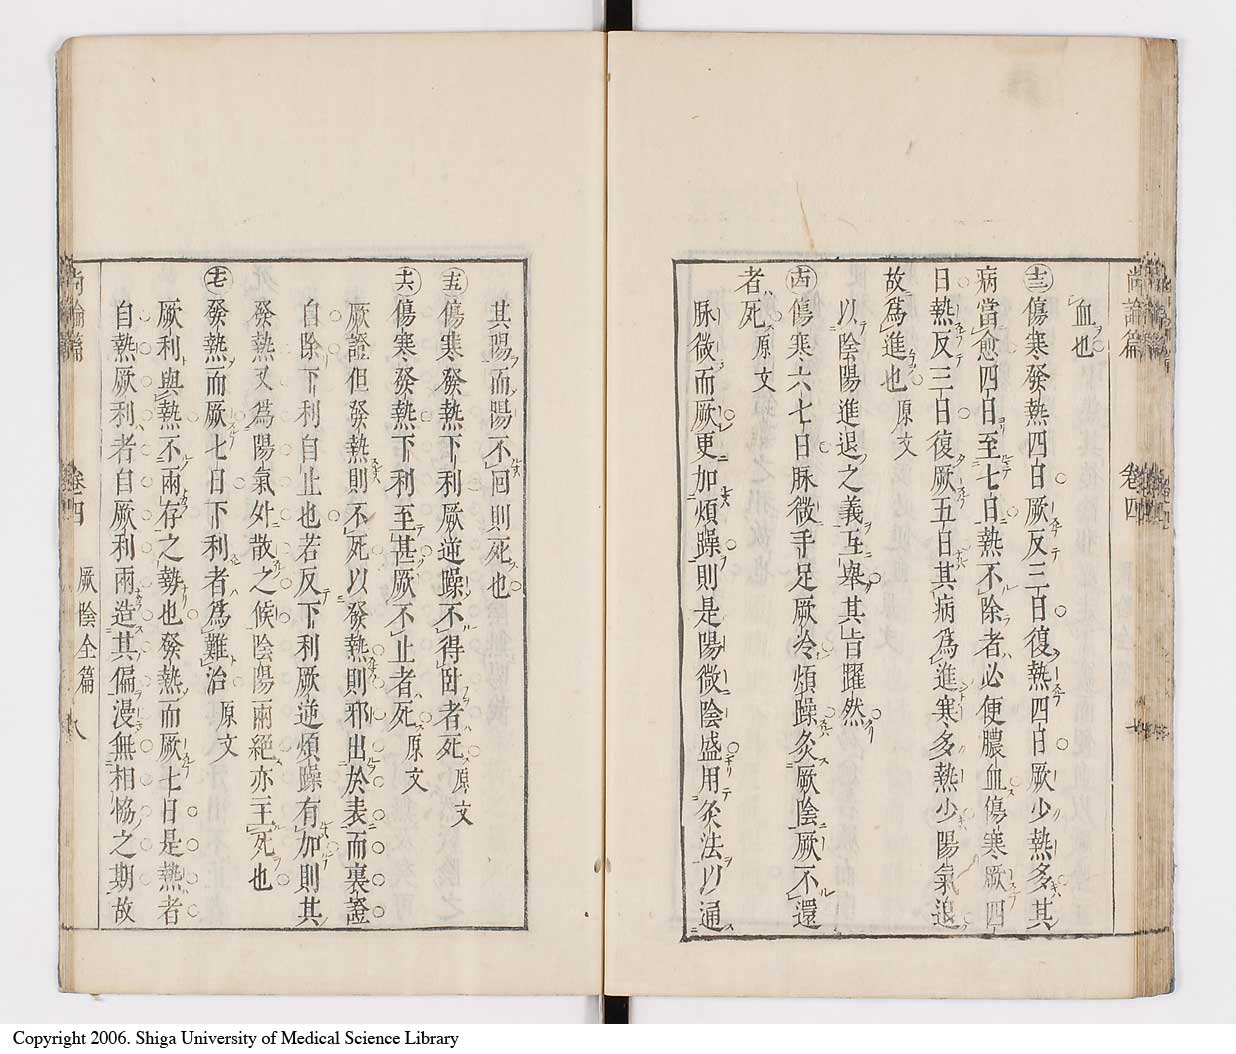 尚論篇 卷四
血也
㊂傷寒發熱四日厥反三日復熱四日厥少熱多其
病當愈四日至七日熱不除者必便膿血傷寒厥四
日熱反三日復厥五日其病爲進寒多熱少陽氣退
故爲進也 原文
以陰陽進退之義互舉其旨躍然
傷寒六七日脉微手足厥冷煩躁灸厥陰厥不還
者死 原文
脉微而厥更加煩躁則是陽微陰盛用灸法以通
其陽而陽不回則死也
傷寒發熱下利厥逆躁不得臥者死 原文
傷寒發熱下利至甚厥不止者死 原文
厥證但發熱則不死以發熱則邪出於表而裏證
自除下利自止也若反下利厥逆煩躁有加則其
發熱又爲陽氣外散之候陰陽兩絕亦主死也
發熱而厥七日下利者爲難治 原文
厥利與熱不兩存之勢也發熱而厥七日是熱者
自熱厥利者自厥利兩造其偏漫無相協之期故
尚論篇 卷四 厥陰全篇 八
Copyright 2006. Shiga University of Medical Science Library